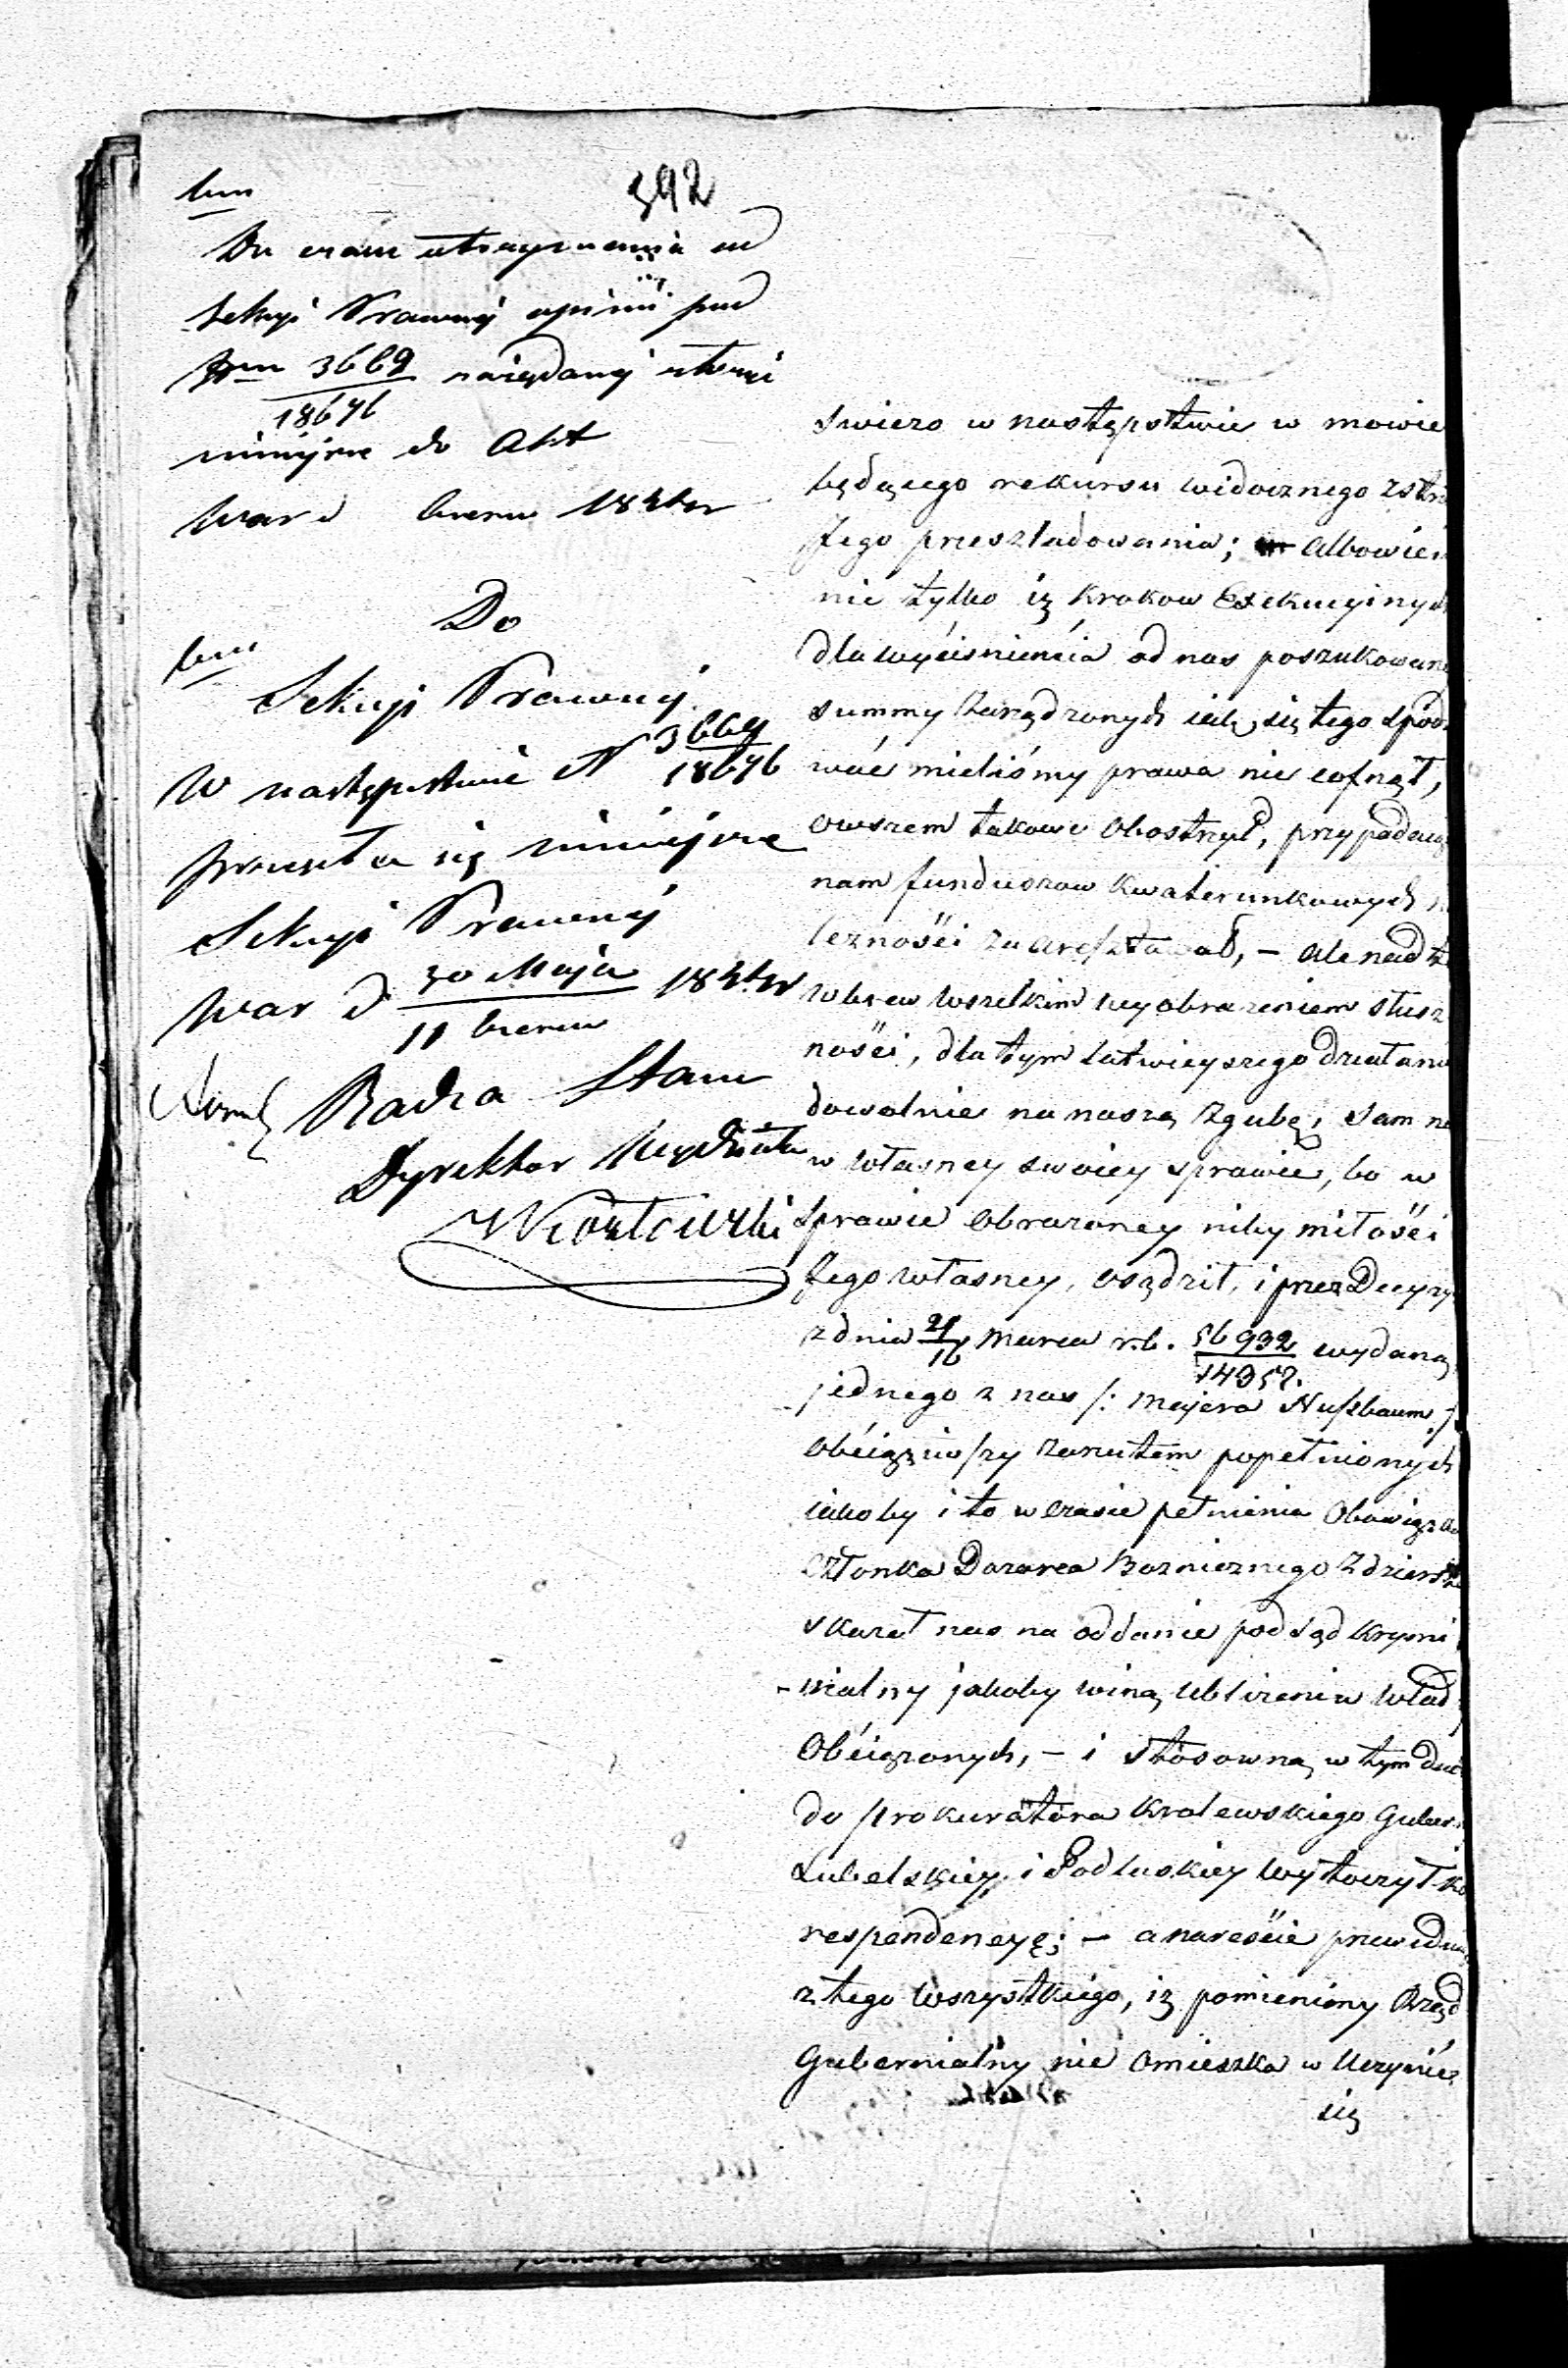 392
Do czasu otrzymania od
Sekcyi Prawnéj opinii pod
3669/18646 zażądanéj złożyć
niniejsze do Akt
War d czerw 184
Do
Sekcyi Prawnéj
W następstwie N 3669/18646
przesyła się niniejsze
Sekcyi Prawnéj
War d 30 Maja/11 czerw 184
Radca Stanu
Dyrektor Wydziału
swiezo w następstwie w mowie
będącego rekursu widocznego z stro
Jego przesladowania; Albowiem
nie tylko iż krokow Exekucyinych
dla wyćisnienćia od nas poszukowane
summy zarządzonych iak się tego spodz
wać mieliśmy prawa nie cofnął,
owszem takowe obostrzył, przypadaiące
nam funduszow kwaterunkowych
leznośći zaaresztował, – ale nadto
wbrew wszelkim wyobrazeniem słusz
nośći, dla tym łatwieyszego działania
dowolnie na naszą zgubę, Sam na
w własney swoiey sprawie, bo w
sprawie obrazoney niby miłośći
Jego własney, osądził, i przez Decyzy
z dnia /16 Marca r. b. 56932/14957. wydaną
jednego z nas /: Majera Nuszbaum :/
obćiążiwszy zarzutem popełnionych
iakoby i to w czasie pełnienia Obowiązku
członka Dozorca Boznicznego zdzierstw
skazał nas na oddanie pod sąd krymi
-nalny jakoby winą ublizenia Wład
Obćiązonych, – i stosowną w tym duchu
do prokuratora Krolewskiego Guber
Lubelskiey i Podlaskiey wytoczył ko
respondencyę; – a nareśćie przewidui
z tego wszystkiego, iż pomieniony Rząd
Gubernialny nie omieszka w uczynić
się